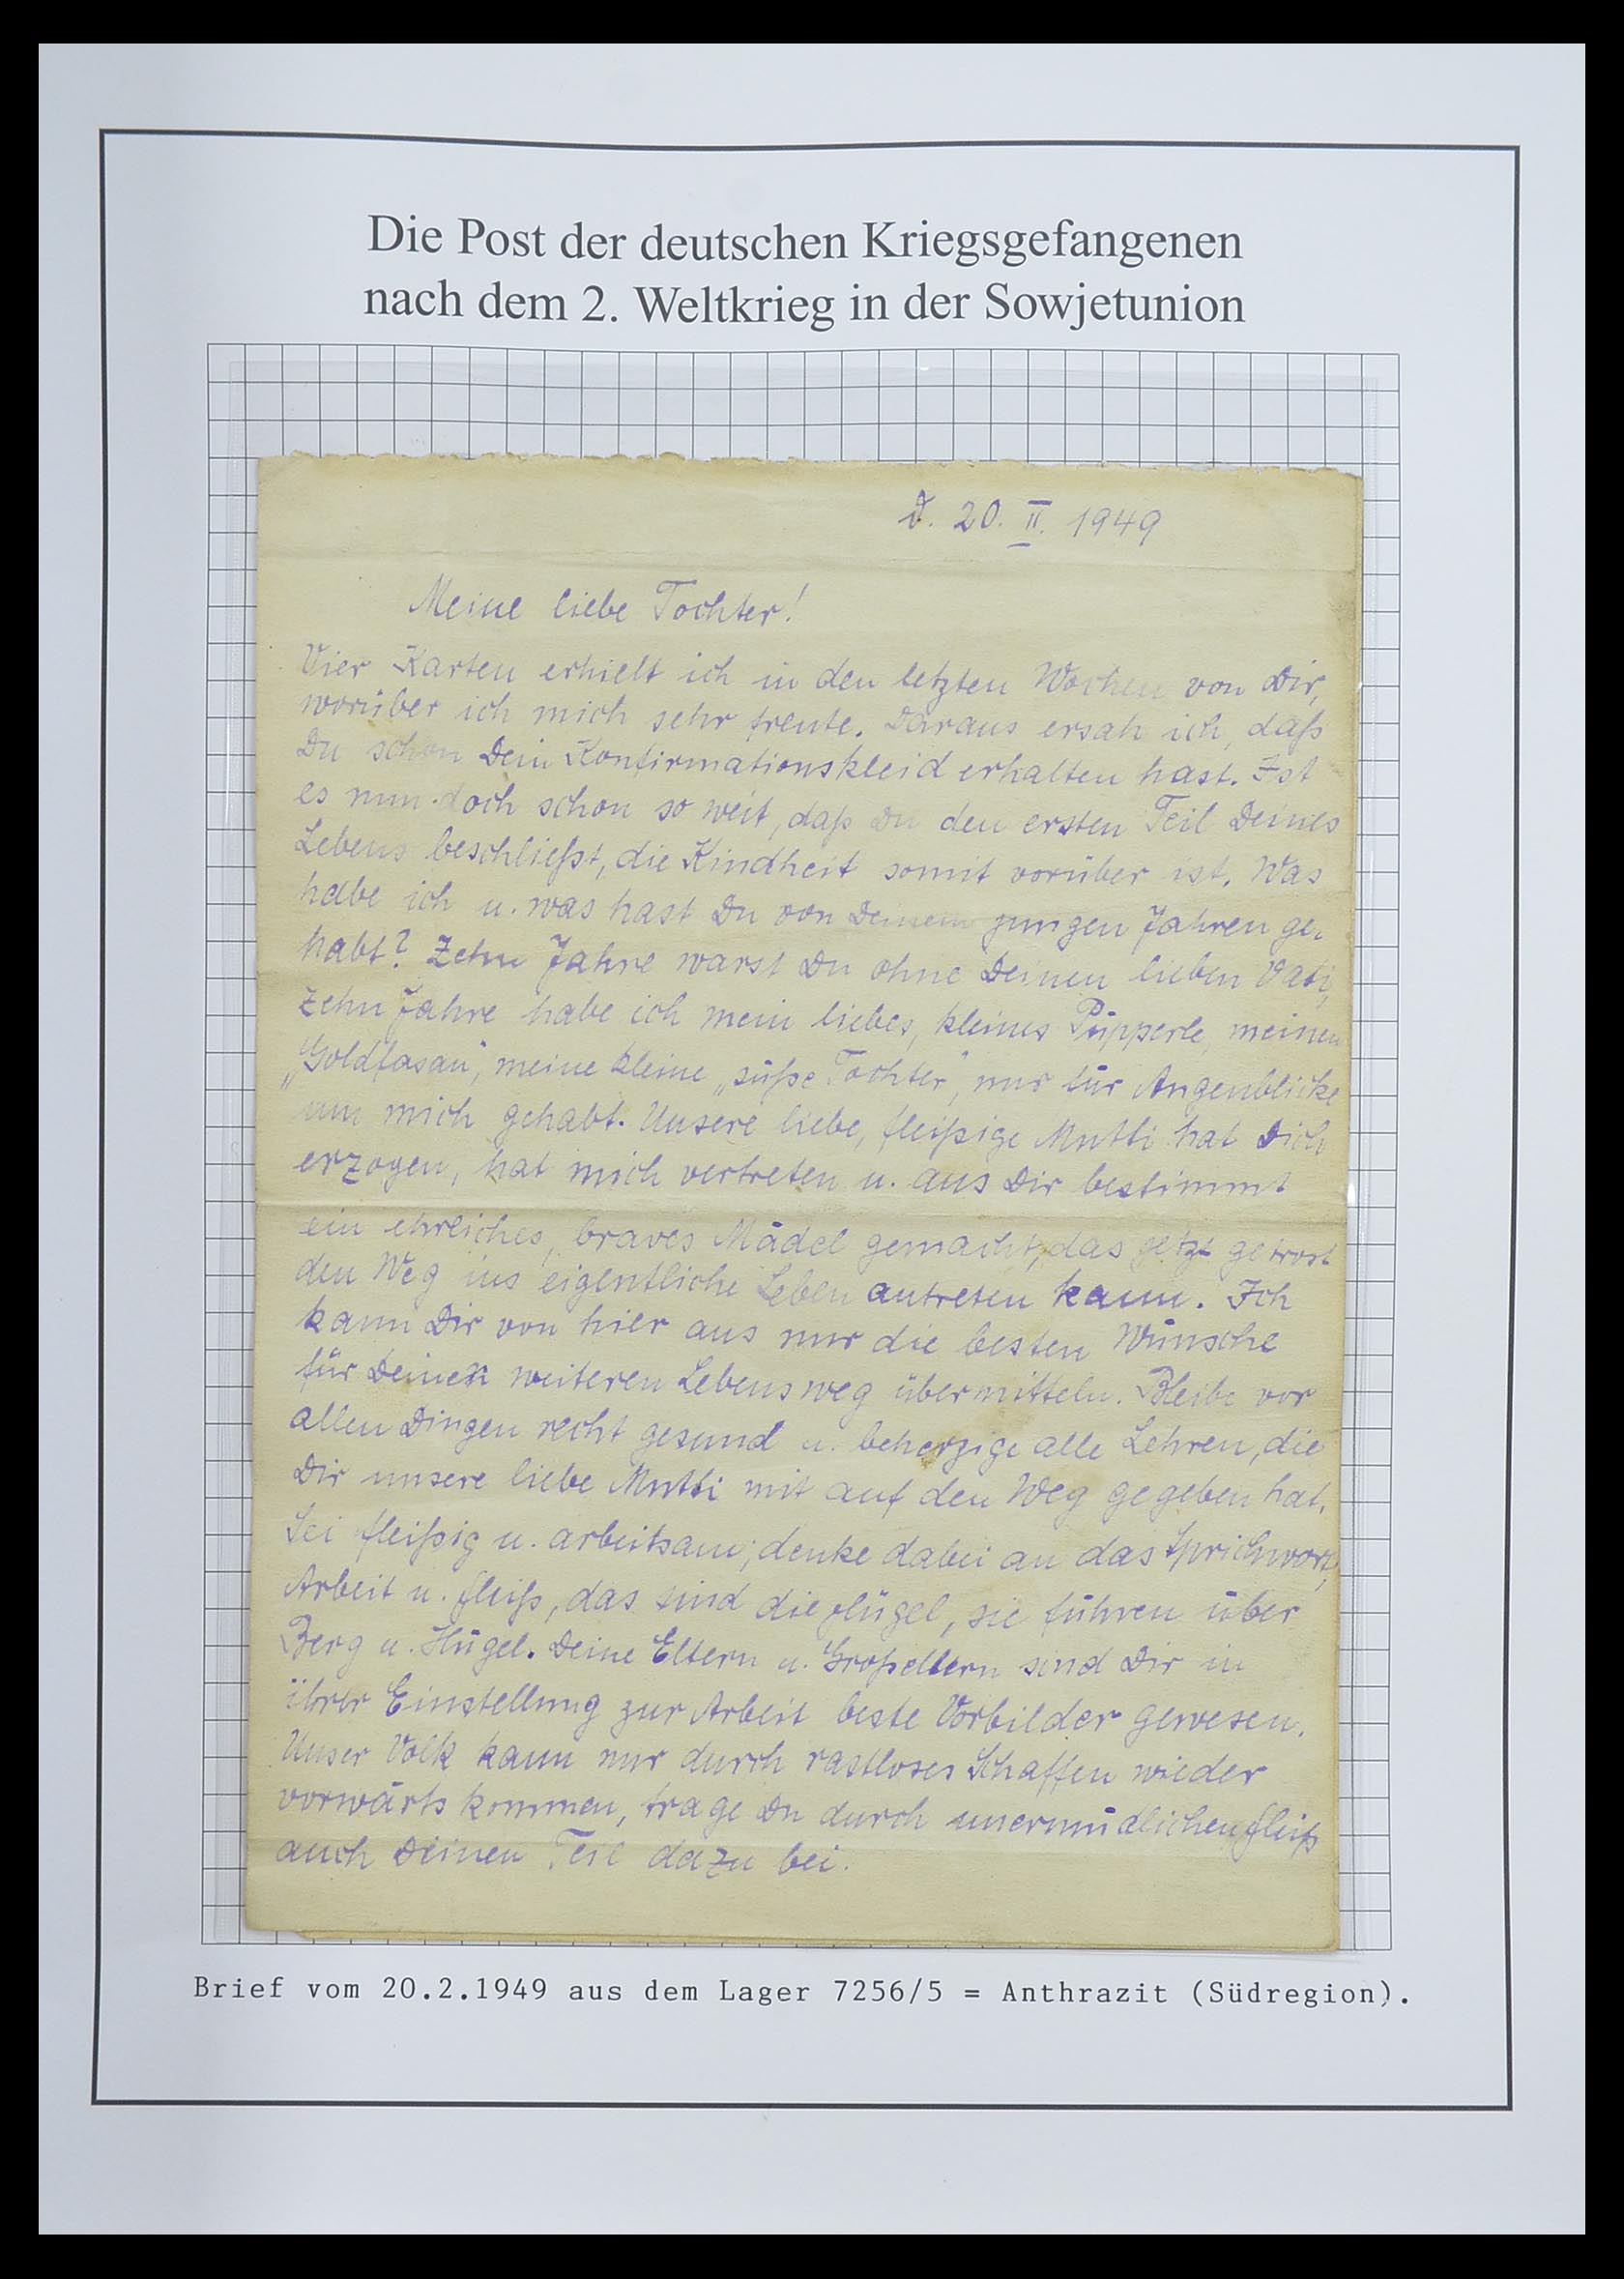 Die Post der deutschen Kriegsgefangenen
nach dem 2. Weltkrieg in der Sowjetunion
D. 20. II. 1949
Meine liebe Tochter!
Vier Karten erhielt ich in den letzten Wochen von Dir,
worüber ich mich sehr freute. Daraus ersah ich, daß
Du schon Dein Konfirmationskleid erhalten hast. Ist
es nun doch schon so weit, daß Du den ersten Teil Deines
Lebens beschließt, die Kindheit somit vorüber ist. Was
habe ich u. was hast Du von Deinem jungen Jahren ge-
habt? Zehn Jahre warst Du ohne Deinen lieben Vati,
zehn Jahre habe ich mein liebes, kleines Püpperle, meinen
„Goldfasan", meine kleine „süße Tochter", nur für Augenblicke
um mich gehabt. Unsere liebe, fleißige Mutti hat Dich
erzogen, hat mich vertreten u. aus Dir bestimmt
ein ehrliches, braves Mädel gemacht, das jetzt getrost
den Weg ins eigentliche Leben antreten kann. Ich
kann Dir von hier aus nur die besten Wünsche
für Deinen weiteren Lebensweg übermitteln. Bleibe vor
allen Dingen recht gesund u. beherzige alle Lehren, die
Dir unsere liebe Mutti mit auf den Weg gegeben hat.
Sei fleißig u. arbeitsam; denke dabei an das Sprichwort,
Arbeit u. Fleiß, das sind die Flügel, sie führen über
Berg u. Hügel. Deine Eltern u. Großeltern sind Dir in
ihrer Einstellung zur Arbeit beste Vorbilder gewesen.
Unser Volk kann nur durch rastloses Schaffen wieder
vorwärts kommen, trage Du durch unermüdlichen Fleiß
auch Deinen Teil dazu bei.
Brief vom 20.2.1949 aus dem Lager 7256/5 = Anthrazit (Südregion).